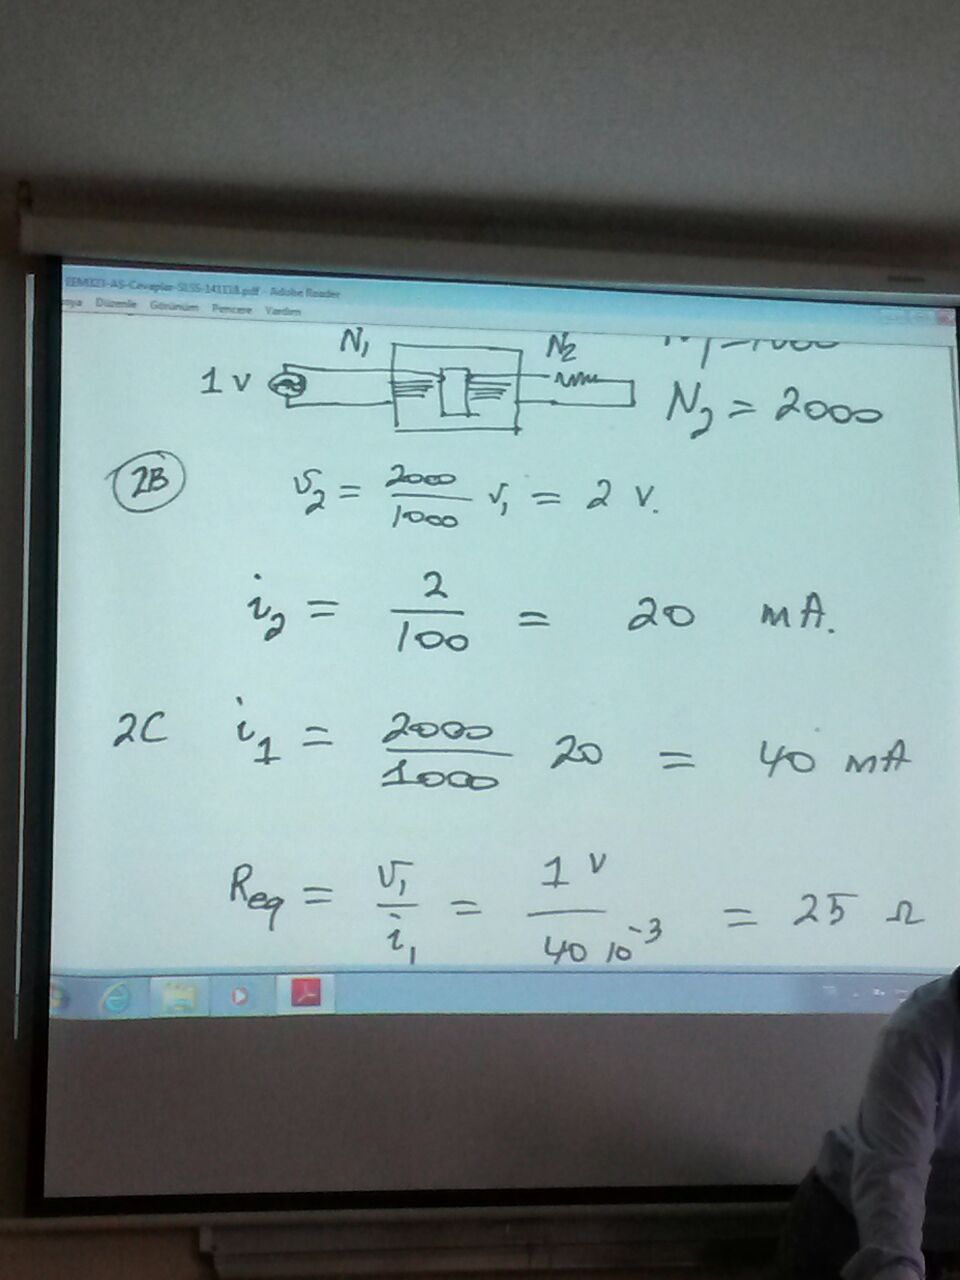 EEM323-AS-Cevaplar-SLSS-141118.pdf - Adobe Reader
Düzenle Görünüm Pencere Yardım
N₁ N₂
1 v
N₂ = 2000
2B v₂ = 2000/1000 v₁ = 2 v.
i₂ = 2/100 = 20 mA.
2C i₁ = 2000/1000 20 = 40 mA
Req = v₁/i₁ = 1 v/40 10⁻³ = 25 Ω